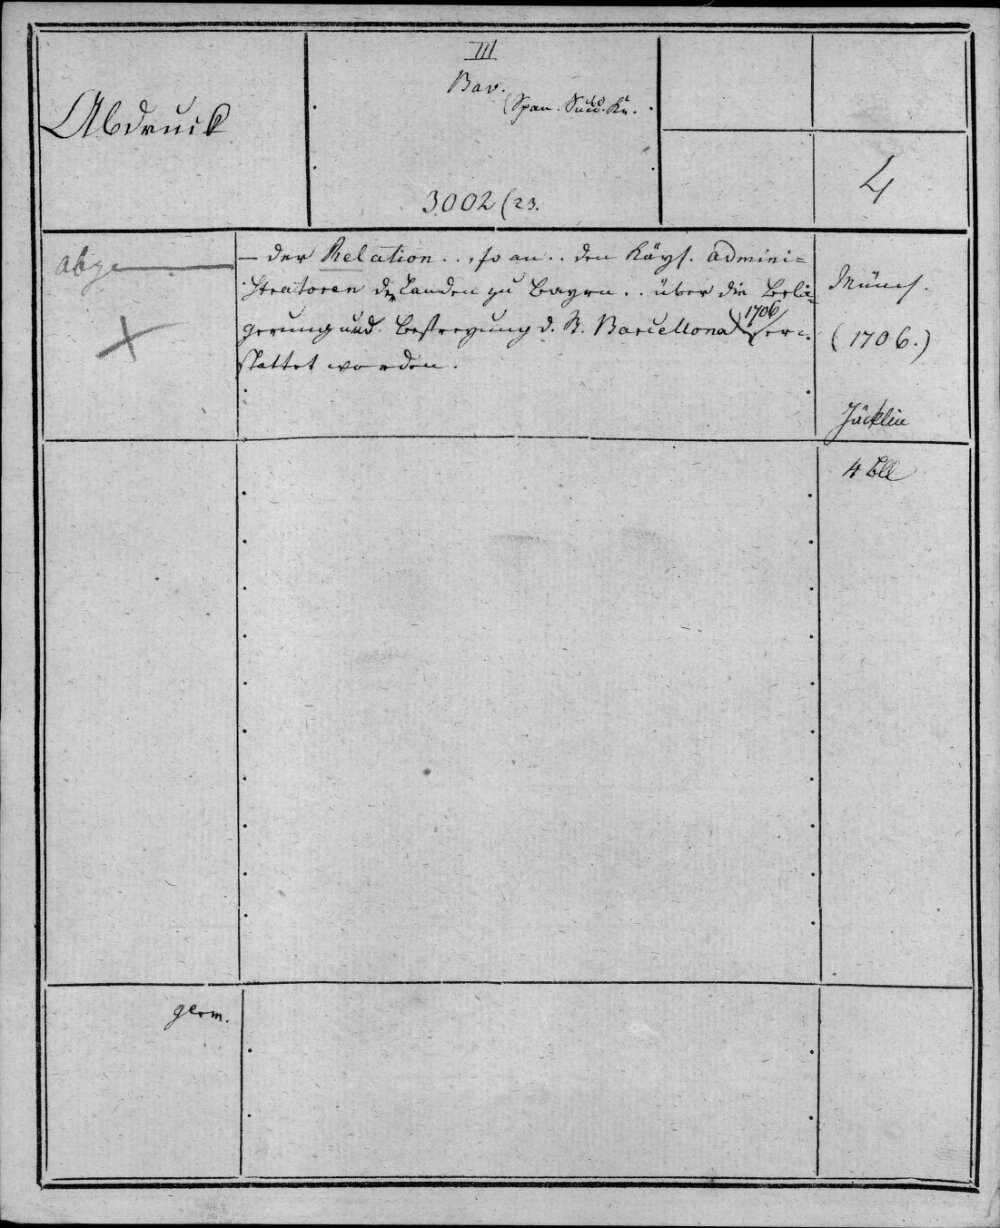 Abdruck
III
Bav.
(Span. Succ. Kr.
3002 (23.
4
abge
— der Relation . . , so an . . den Kays. admini=
stratoren der Landen zu Bayrn . . über die Belä=
gerung und Bestreyung d. St. Barcellona 1706 er=
stattet worden.
Münch.
(1706.)
Jäcklin
4 Bll
germ.